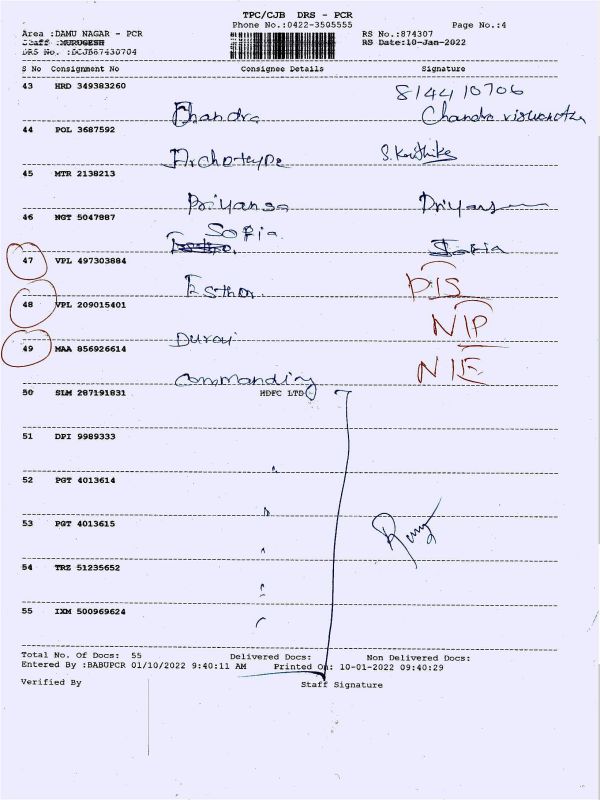 TPC/CJB DRS - PCR
Phone No.:0422-3505555 Page No.:4
Area :DAMU NAGAR - PCR RS No.:874307
Staff :MURUGESH RS Date:10-Jan-2022
DRS No. :DCJB87430704
S No Consignment No Consignee Details Signature
43 HRD 349383260 814410706
Chandra Chandra
44 POL 3687592
Archoteype S. Karthika
45 MTR 2138213
Priyansa Priyans
46 NGT 5047887 Sofia
Sofia
47 VPL 497303884
Esther D/S
48 VPL 209015401 N/P
Durai
49 MAA 856926614 N/E
Commanding
50 SLM 287191831 HDFC LTD
51 DPI 9989333
52 PGT 4013614
53 PGT 4013615
54 TRZ 51235652
55 IXM 500969624
Total No. Of Docs: 55 Delivered Docs: Non Delivered Docs:
Entered By :BABUPCR 01/10/2022 9:40:11 AM Printed On: 10-01-2022 09:40:29
Verified By Staff Signature